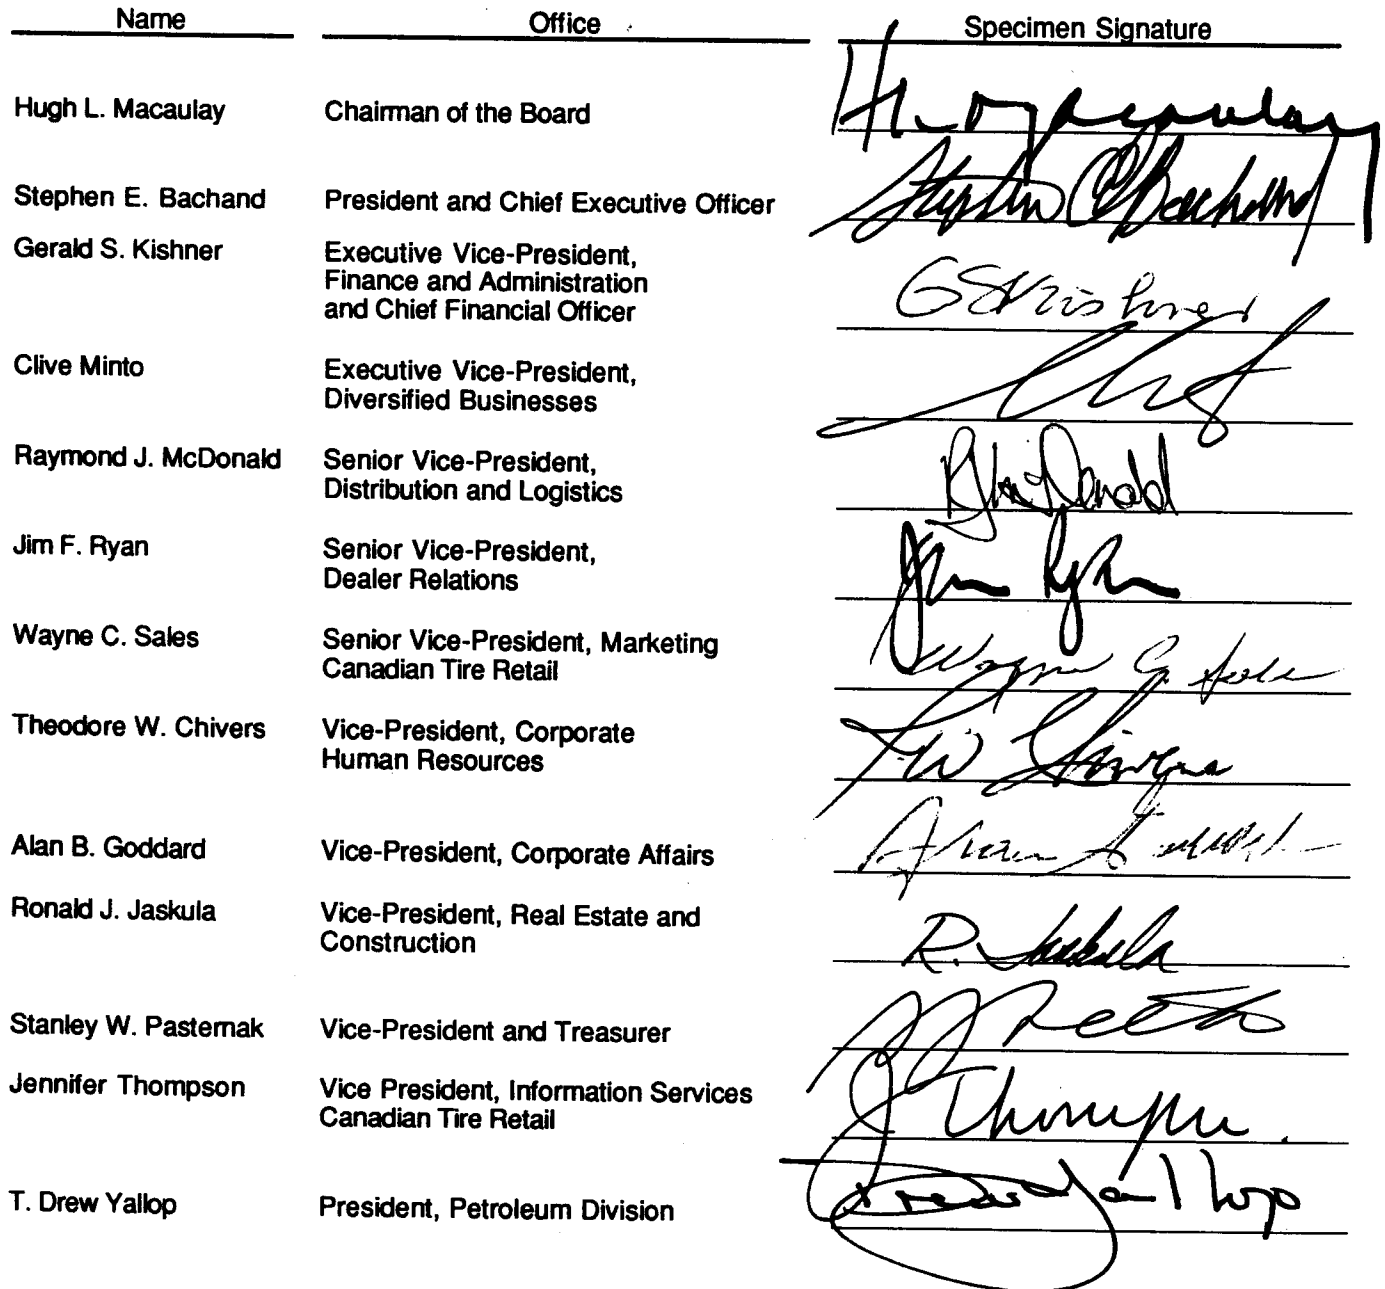 Name Office Specimen Signature
Hugh L. Macaulay Chairman of the Board H. L. Macaulay
Stephen E. Bachand President and Chief Executive Officer Stephen E Bachand
Gerald S. Kishner Executive Vice-President, GSKishner
Finance and Administration
and Chief Financial Officer
Clive Minto Executive Vice-President,
Diversified Businesses
Raymond J. McDonald Senior Vice-President, RJMcDonald
Distribution and Logistics
Jim F. Ryan Senior Vice-President, Jim Ryan
Dealer Relations
Wayne C. Sales Senior Vice-President, Marketing Wayne C. Sales
Canadian Tire Retail
Theodore W. Chivers Vice-President, Corporate TW Chivers
Human Resources
Alan B. Goddard Vice-President, Corporate Affairs Alan Goddard
Ronald J. Jaskula Vice-President, Real Estate and R. Jaskula
Construction
Stanley W. Pasternak Vice-President and Treasurer
Jennifer Thompson Vice President, Information Services J Thompson
Canadian Tire Retail
T. Drew Yallop President, Petroleum Division Drew Yallop